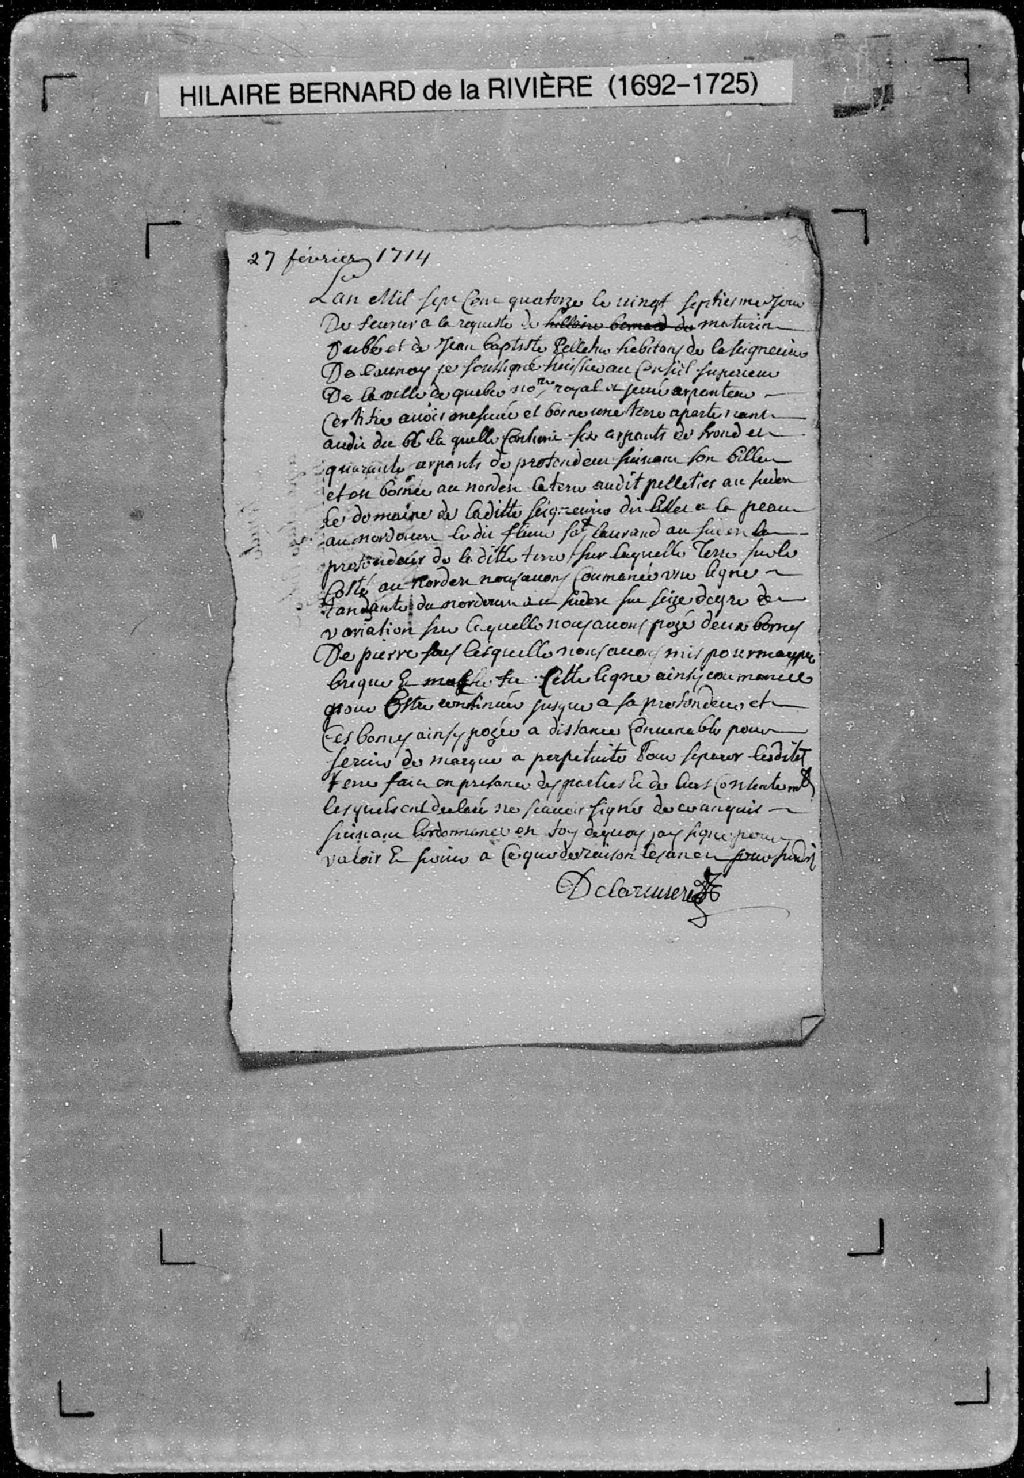 HILAIRE BERNARD de la RIVIÈRE (1692–1725)
27 février 1714
Lan Mil sept Cent quatorze le vingt septiesme Jour
De feuvrier a la requeste de hillaire bernard de maturin
Dubé et de Jean baptiste Pelletier habitans de la seigneurie
De launoy je soussigné huissier au Conseil superieur
De la ville de quebec no.re royal et juré arpenteur
Certifie avoir mesuré et borné une terre apartenant
audit dubé la quelle Contient six arpants de frond et
quarante arpants de profondeur suivant son billet
et on bornée au nordest la terre audit pelletier au
le domaine de laditte seigneurie du
au nordouest le dit fleuve St laurand au
profondeur de laditte terre sur laquelle Terre sur le
Costé au Nordest nous avons Commancé une ligne
Tandante du nordouest au sudest sur seize degre de
variation sur laquelle nous avons pozé deux bornes
De pierre sous lesquelle nous avons mis pour marque
brique & Cette ligne ainsy commancée
pour Estre continuée jusque a sa profondeur et
Ces bornes ainsy pozée a distance Convenable pour
servir de marque a perpetuité Pour separer lesdites
terre fait en presance des parties & de leurs Consentemt
lesquels ont declaré ne scavoir signé de ce anquis
suivant lordonnance en foy dequoy jay signé pour
valoir & servir a Ce que de raison lesan
Delariviere